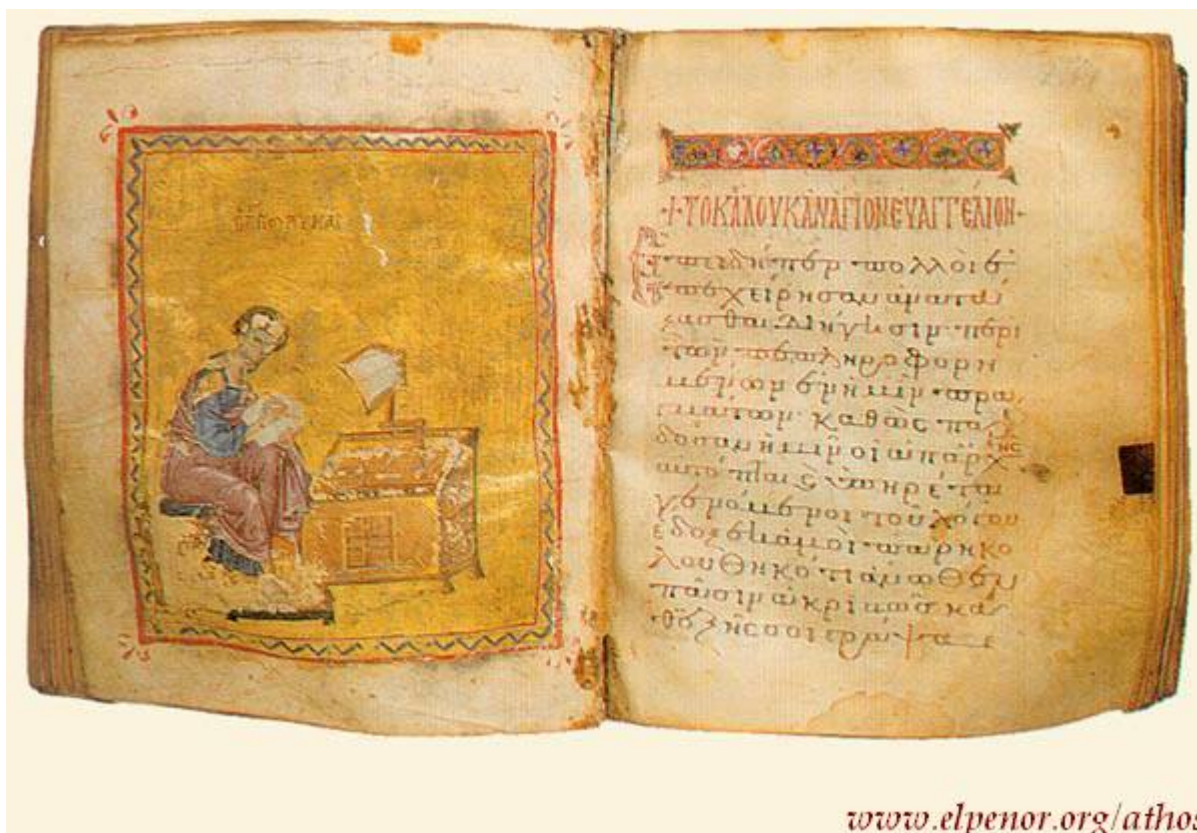 + ΤΟ ΚΑΤΑ ΛΟΥΚΑΝ ΑΓΙΟΝ ΕΥΑΓΓΕΛΙΟΝ
Επειδήπερ πολλοὶ ἐ
πεχείρησαν ἀνατά
ξασθαι διήγησιν περὶ
τῶν πεπληροφορη
μένων ἐν ἡμῖν πρα
γμάτων· καθὼς πα
δοσαν ἡμῖν οἱ ἀπ' ἀρχῆς
αὐτόπται καὶ ὑπηρέται
γενόμενοι τοῦ λόγου
ἔδοξε κἀμοὶ παρηκο
λουθηκότι ἄνωθεν
πᾶσιν ἀκριβῶς κα
θεξῆς σοι γράψαι
www.elpenor.org/athos